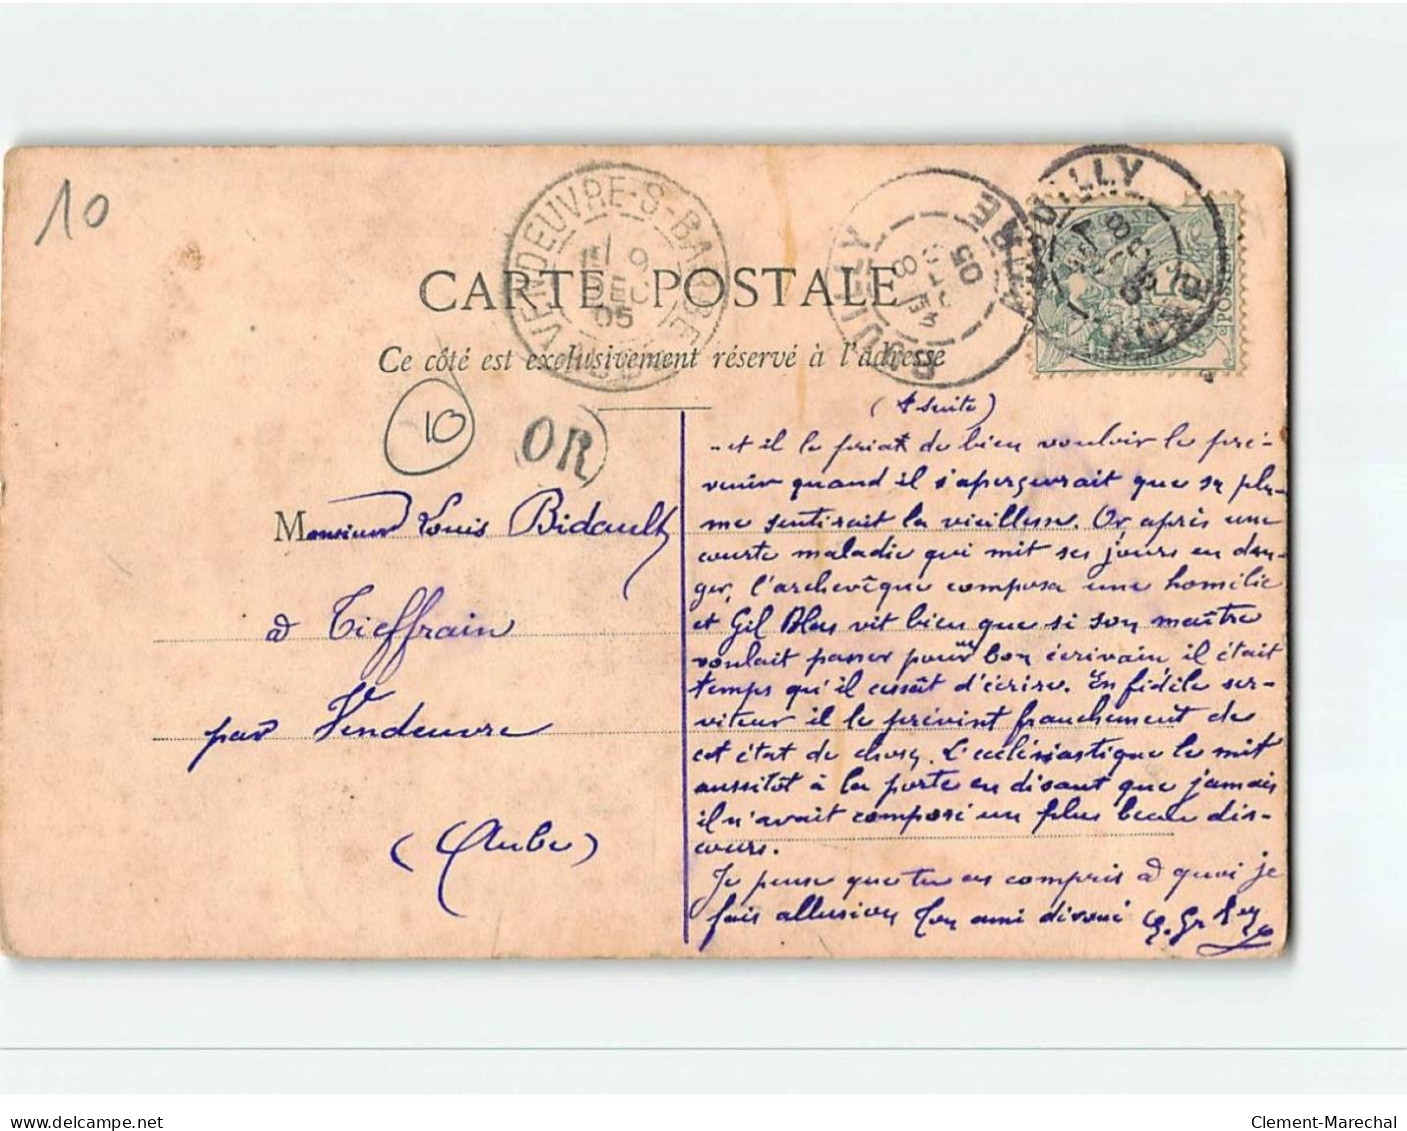 10
VENDEUVRE-S-BARSE
9
DEC
05
CARTE POSTALE
Ce côté est exclusivement réservé à l'adresse
10
OR
Monsieur Louis Bidault
à Tieffrain
par Vendeuvre
(Aube)
(suite)
..et il le priait de bien vouloir le pré-
venir quand il s'apercevrait que sa plu-
me sentirait la vieillesse. Or après une
courte maladie qui mit ses jours en dan-
ger, l'archevêque composa une homélie
et Gil Blas vit bien que si son maître
voulait passer pour un bon écrivain il était
temps qu'il cessât d'écrire. En fidèle ser-
viteur il le prévint franchement de
cet état de chose. L'ecclésiastique le mit
aussitôt à la porte en disant que jamais
il n'avait composé un plus beau dis-
cours.
Je pense que tu as compris à quoi je
fais allusion Ton ami dévoué
delcampe.net
Clement-Marechal